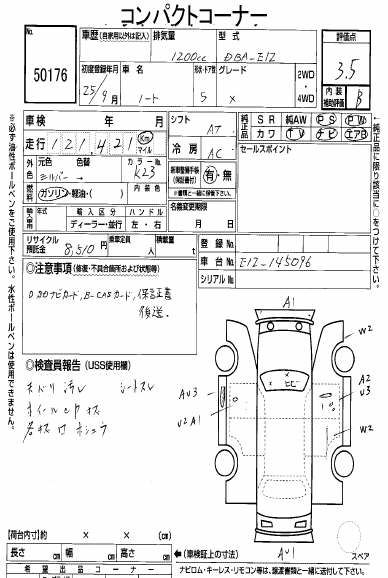 コンパクトコーナー
50176
車歴 (自家用以外は記入)
排気量
1200cc
型式
DBA-E12
評価点
3.5
内装
補助評価
B
初度登録年月
25/9月
車名
ノート
形状・ドア数
5
グレード
X
2WD
4WD
車検 年 月
シフト
AT
純正品
SR 純AW PS PW
カワ TV ナビ エアB
走行 121,421 Km マイル
冷房
AC
セールスポイント
外色
シルバー →
元色 色替
カラーNo.
K23
燃料
ガソリン・軽油・( )
内装色
新車整備手帳
(保証書付)
有・無
※書類と一緒に保管して下さい。
輸入車
年式 輸入区分 ハンドル
ディーラー・並行 左・右
名義変更期限
月 日
リサイクル預託金
8,510円
乗車定員 人
積載量 t
登録No.
車台No. E12-145096
シリアルNo.
◎注意事項 (修復・不具合箇所および状態等)
ナビカード, B-CASカード, 保証書
後送
◎検査員報告 (USS使用欄)
シートスレ
A1
W2
A2
U3
W2
AU3
U2 A1
AU1
ヒビ
スペア
※必ず油性ボールペンをご使用下さい。水性ボールペンは使用できません。
【荷台内寸】約 × × (cm)
長さ cm 幅 cm 高さ cm
(車検証上の寸法)
希望出品コーナー
ナビロム・キーレス・リモコン等は、譲渡書類と一緒に送付して下さい